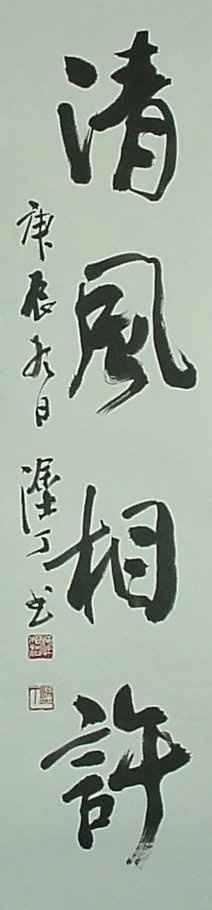 清風相許
庚辰冬日 丁書